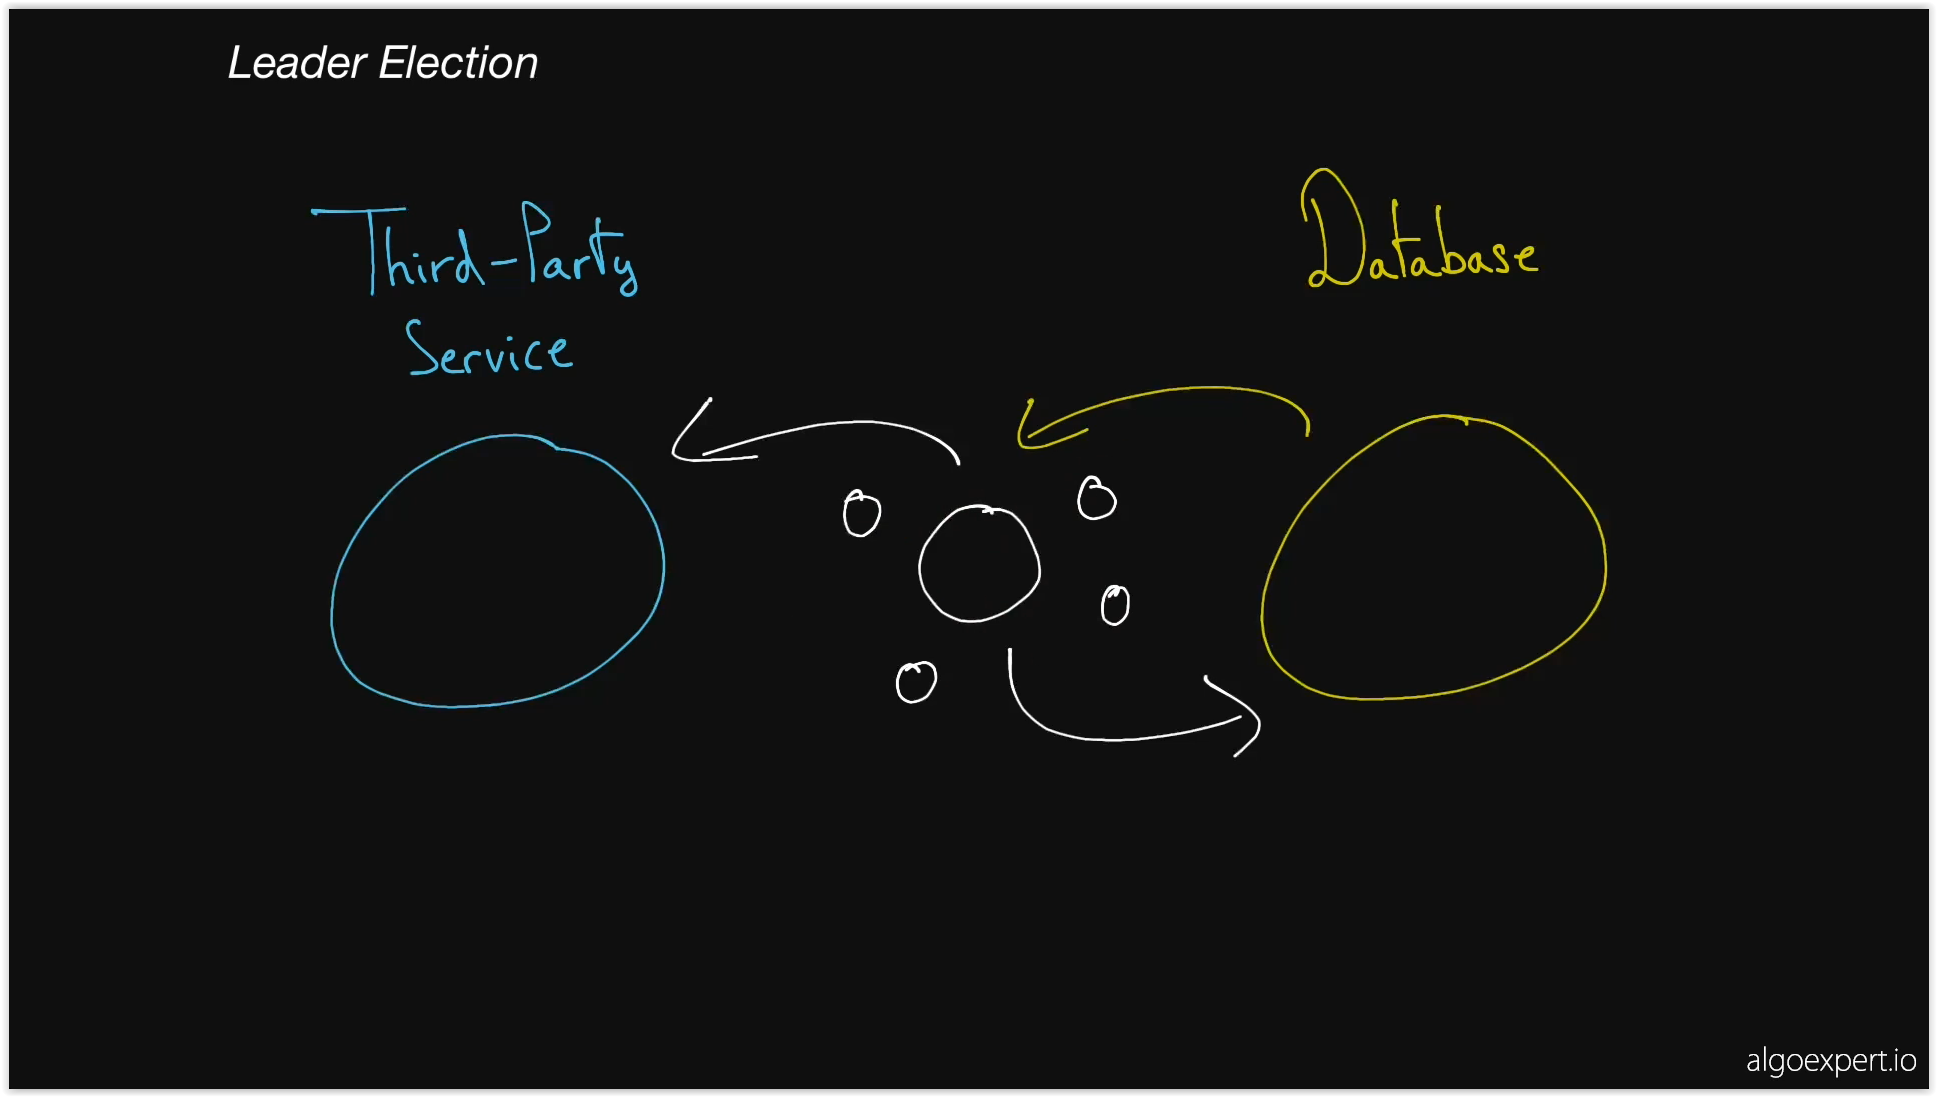 Leader Election
Third-Party
Service
Database
algoexpert.io